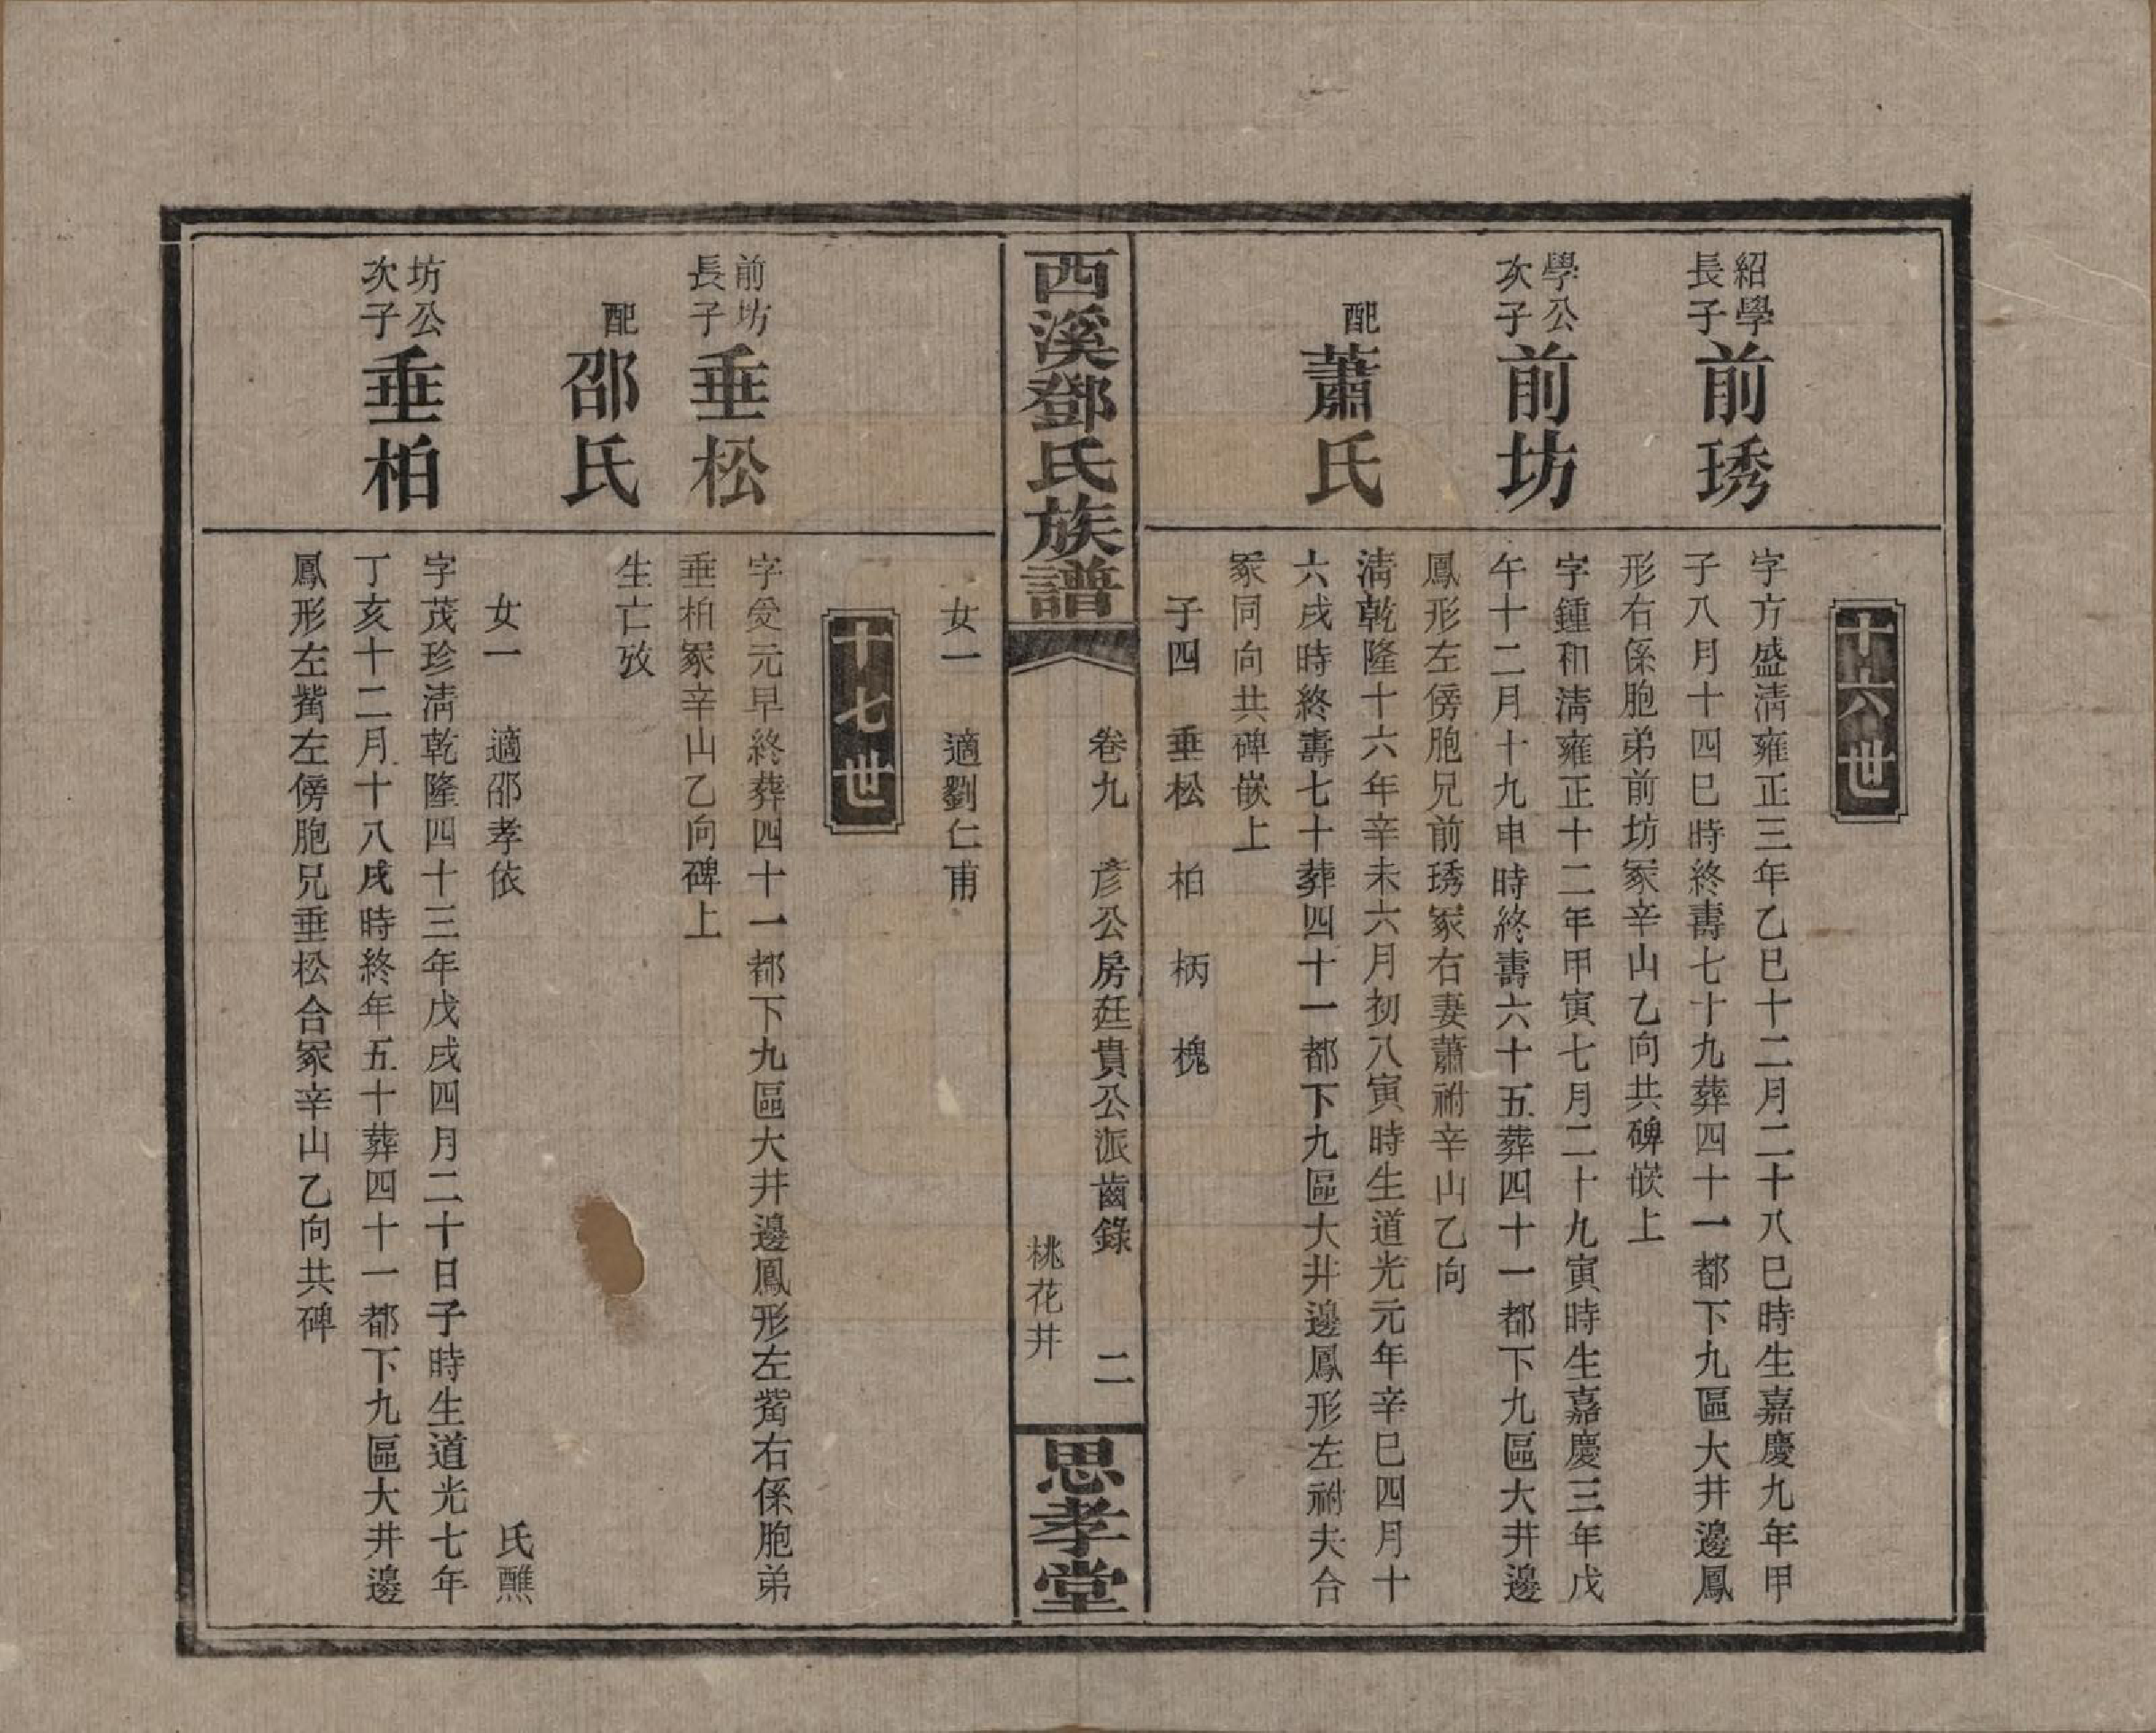 十六世
紹學
長子
前琇
字方盛淸雍正三年乙巳十二月二十八巳時生嘉慶九年甲
子八月十四巳時終壽七十九葬四十一都下九區大井邊鳳
形右係胞弟前坊冢辛山乙向共碑嵌上
學公
次子
前坊
字鍾和淸雍正十二年甲寅七月二十九寅時生嘉慶三年戊
午十二月十九申時終壽六十五葬四十一都下九區大井邊
鳳形左傍胞兄前琇冢右妻蕭祔辛山乙向
配
蕭氏
淸乾隆十六年辛未六月初八寅時生道光元年辛巳四月十
六戌時終壽七十葬四十一都下九區大井邊鳳形左祔夫合
冢同向共碑嵌上
子四 垂松 柏 柄 槐
西溪鄧氏族譜
卷九 彦公房廷貴公派齒錄 二
桃花井
思孝堂
女一 適劉仁甫
十七世
前坊
長子
垂松
字受元早終葬四十一都下九區大井邊鳳形左觜右係胞弟
垂柏冢辛山乙向碑上
配
邵氏
生亡攷
女一 適邵孝依 氏醮
坊公
次子
垂柏
字茂珍淸乾隆四十三年戊戌四月二十日子時生道光七年
丁亥十二月十八戌時終年五十葬四十一都下九區大井邊
鳳形左觜左傍胞兄垂松合冢辛山乙向共碑